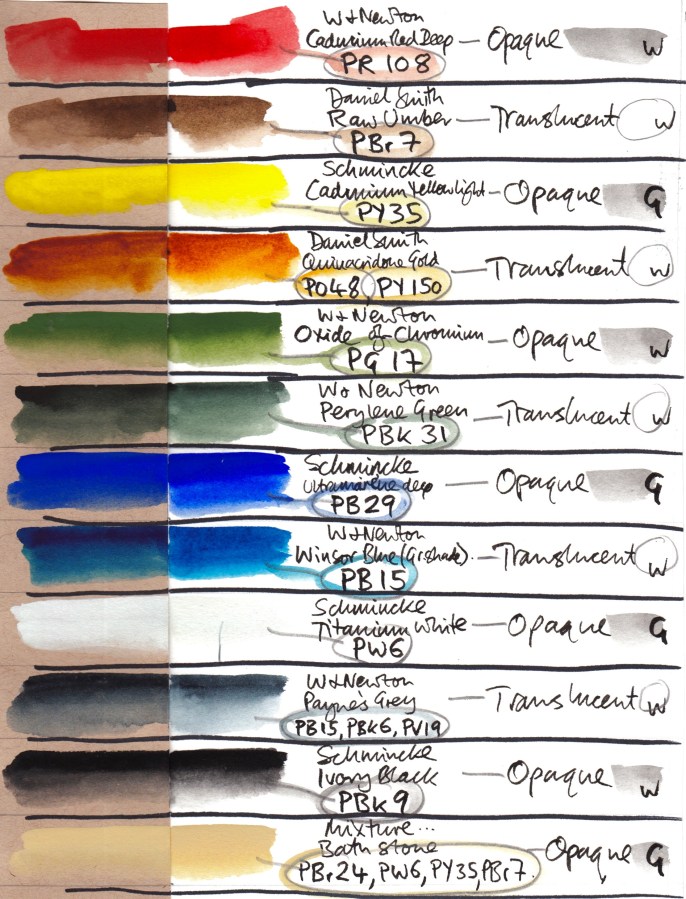 W+Newton
Cadmium Red Deep — Opaque W
PR 108
Daniel Smith
Raw Umber — Translucent W
PBr 7
Schmincke
Cadmium Yellow light — Opaque G
PY35
Daniel Smith
Quinacridone Gold — Translucent W
PO48 PY150
W+Newton
Oxide of Chromium — Opaque W
PG 17
W+Newton
Perylene Green — Translucent W
PBk 31
Schmincke
Ultramarine deep — Opaque G
PB29
W+Newton
Winsor Blue (Gr.shade). — Translucent W
PB15
Schmincke
Titanium White — Opaque G
PW6
W+Newton
Payne's Grey — Translucent W
PB15, PBk6, PV19
Schmincke
Ivory Black — Opaque W
PBk 9
Mixture...
Bath stone Opaque G
PBr24, PW6, PY35, PBr7.